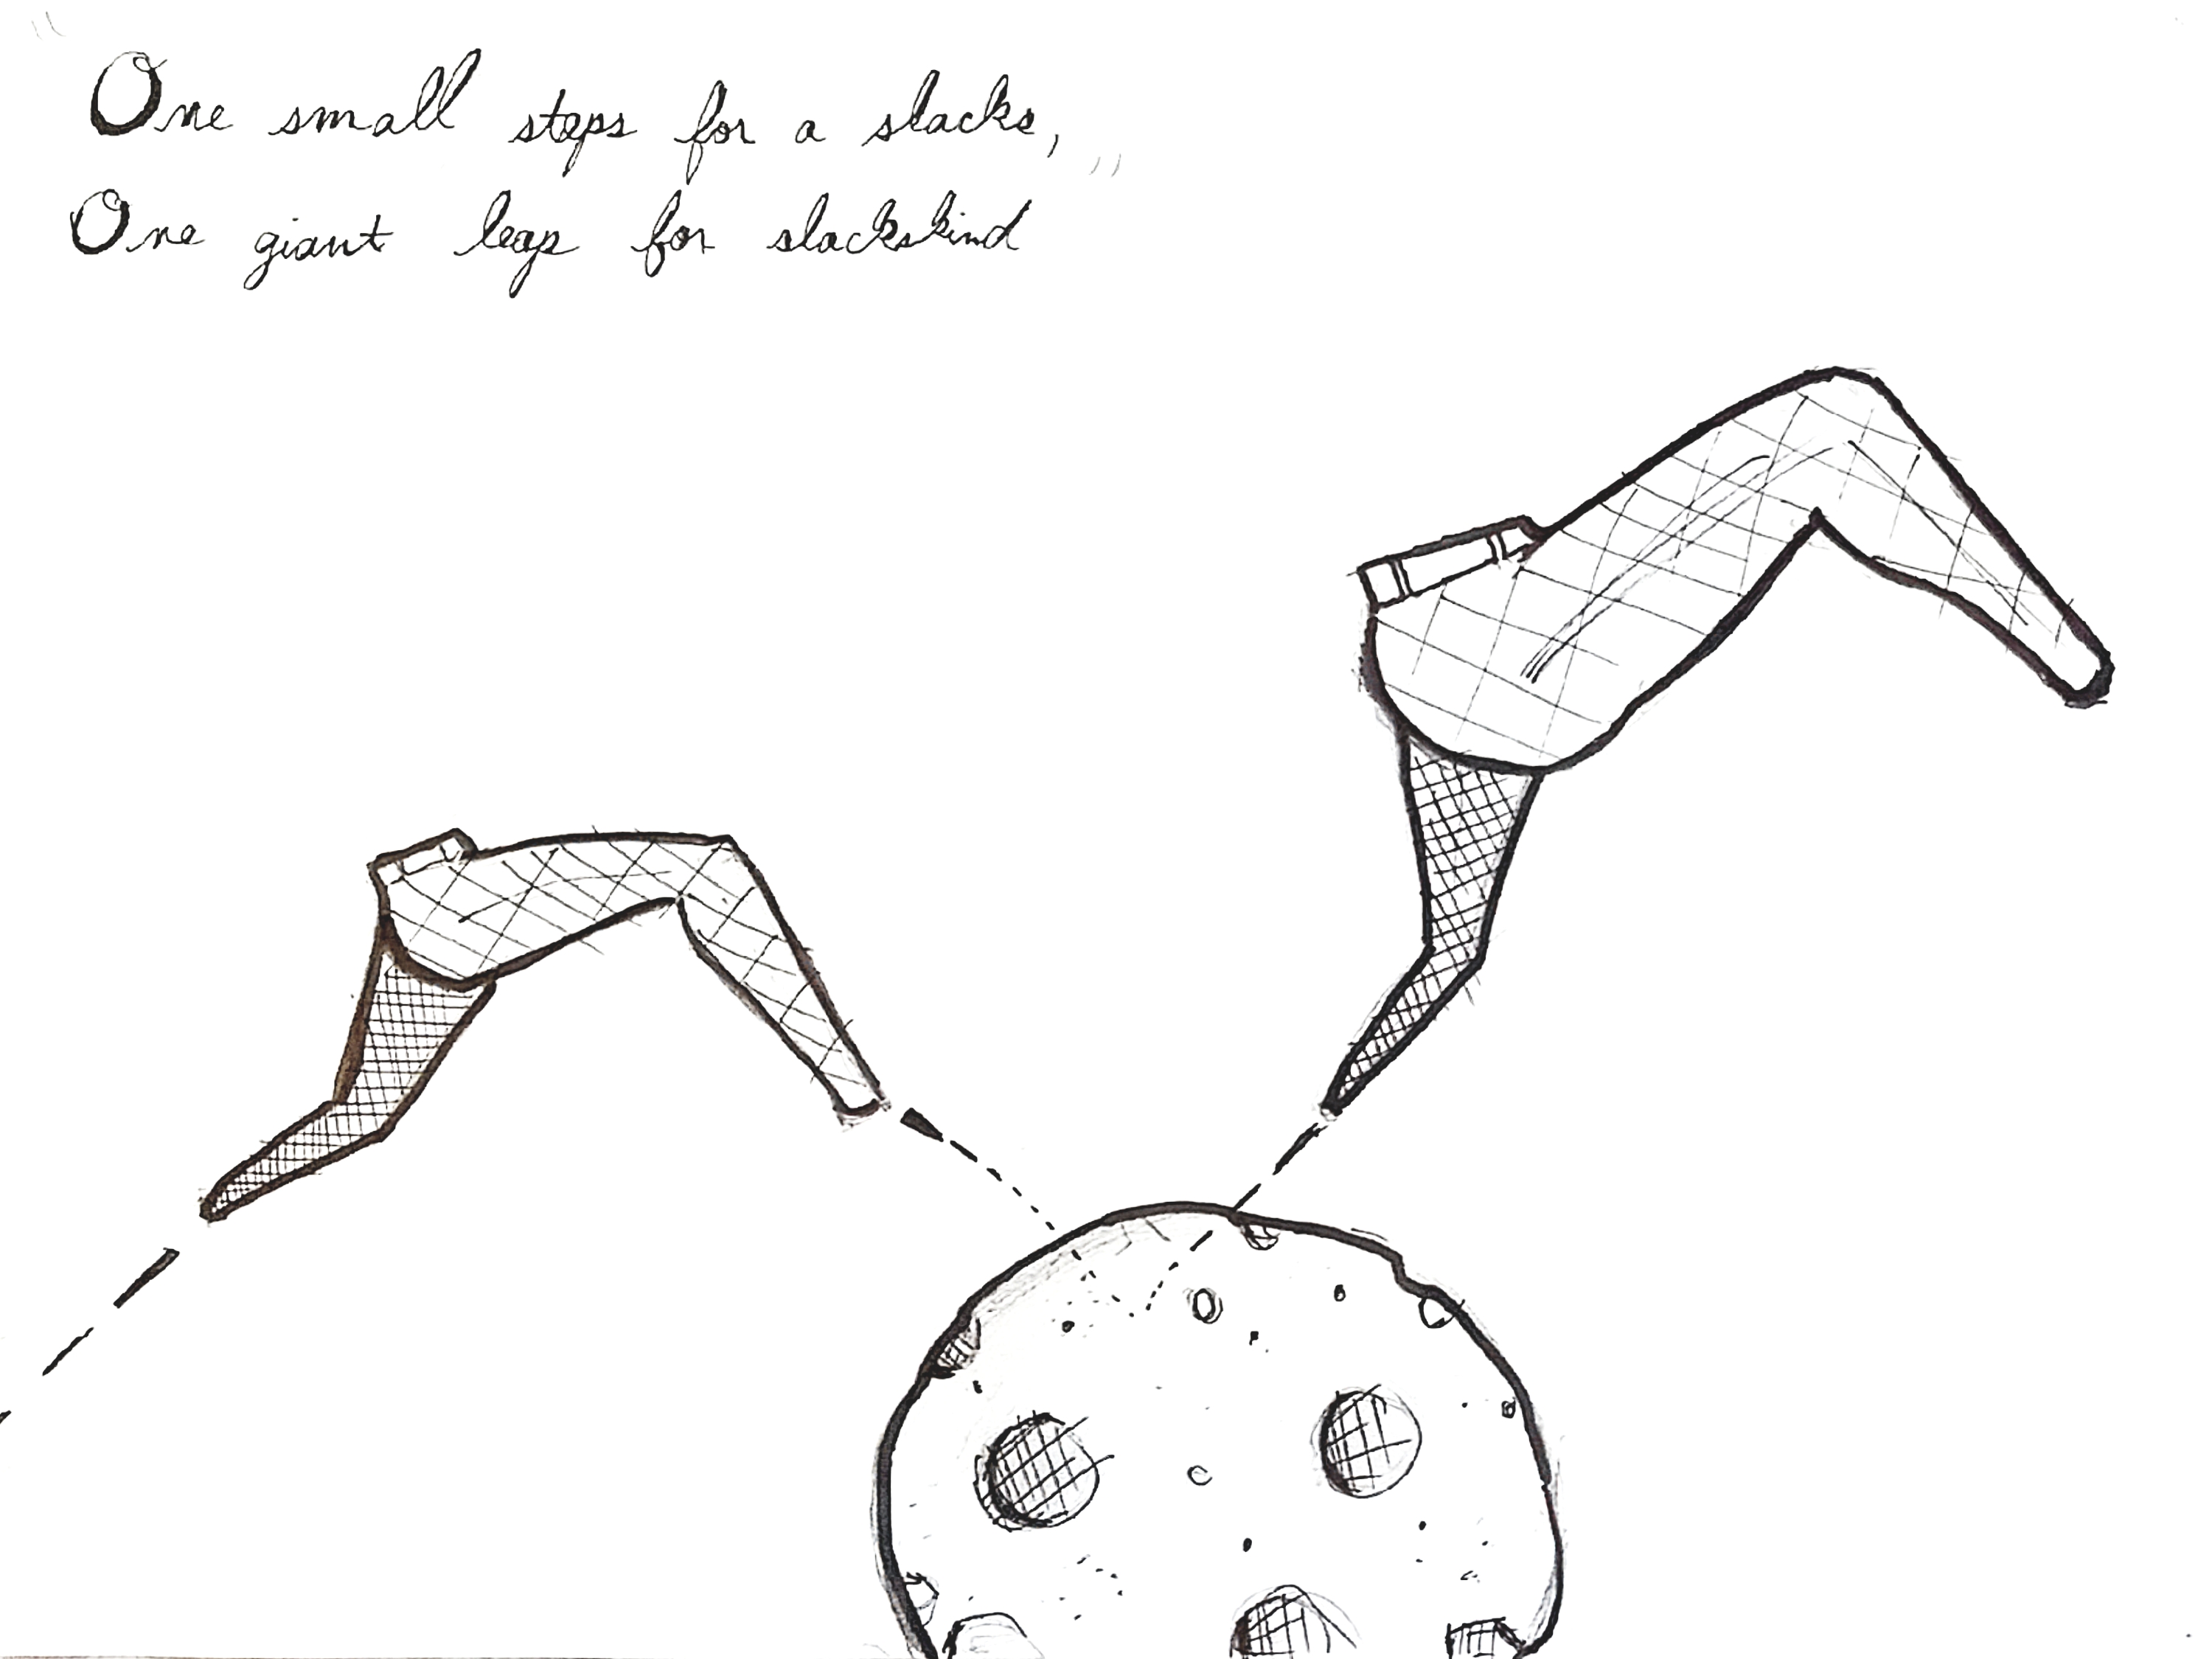 One small steps for a slacks,
One giant leap for slackskind